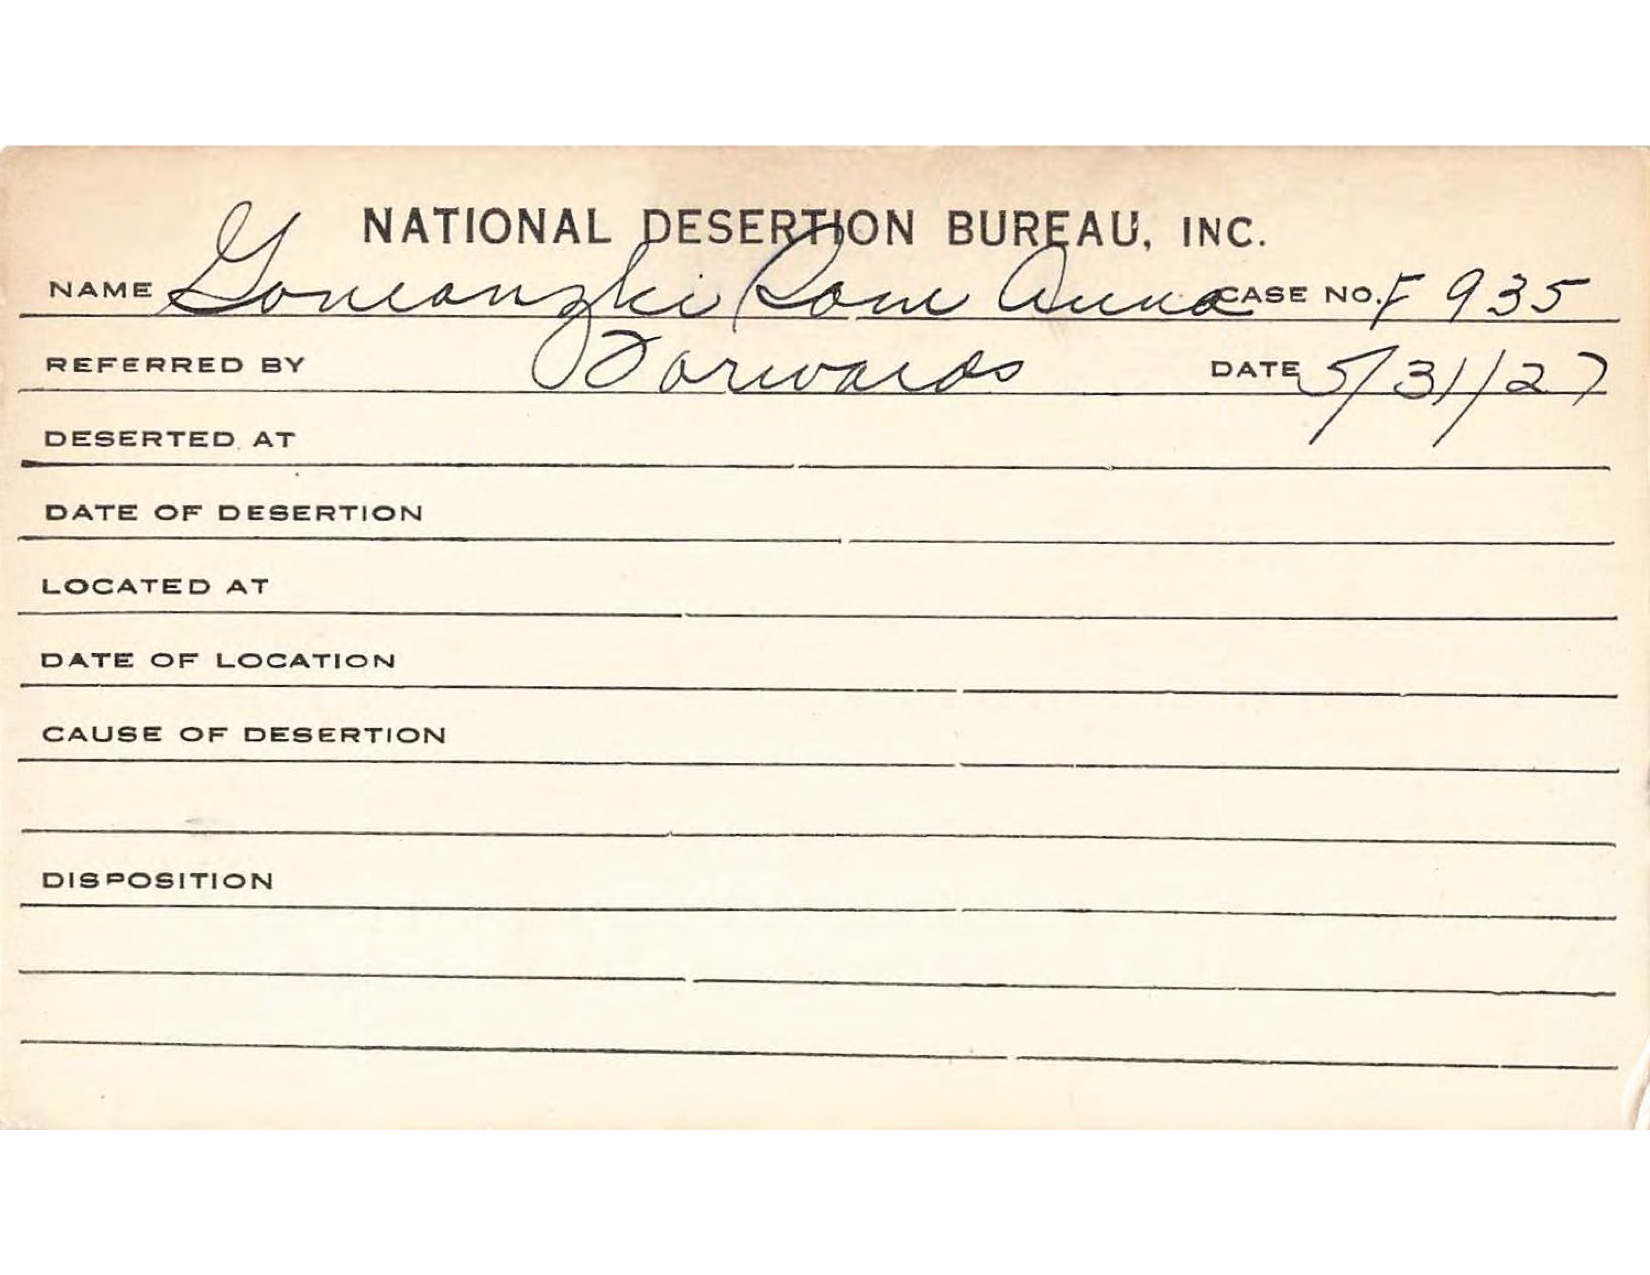 NATIONAL DESERTION BUREAU, INC.
NAME Anna CASE NO. F 935
REFERRED BY Forwards DATE 5/31/27
DESERTED AT
DATE OF DESERTION
LOCATED AT
DATE OF LOCATION
CAUSE OF DESERTION
DISPOSITION